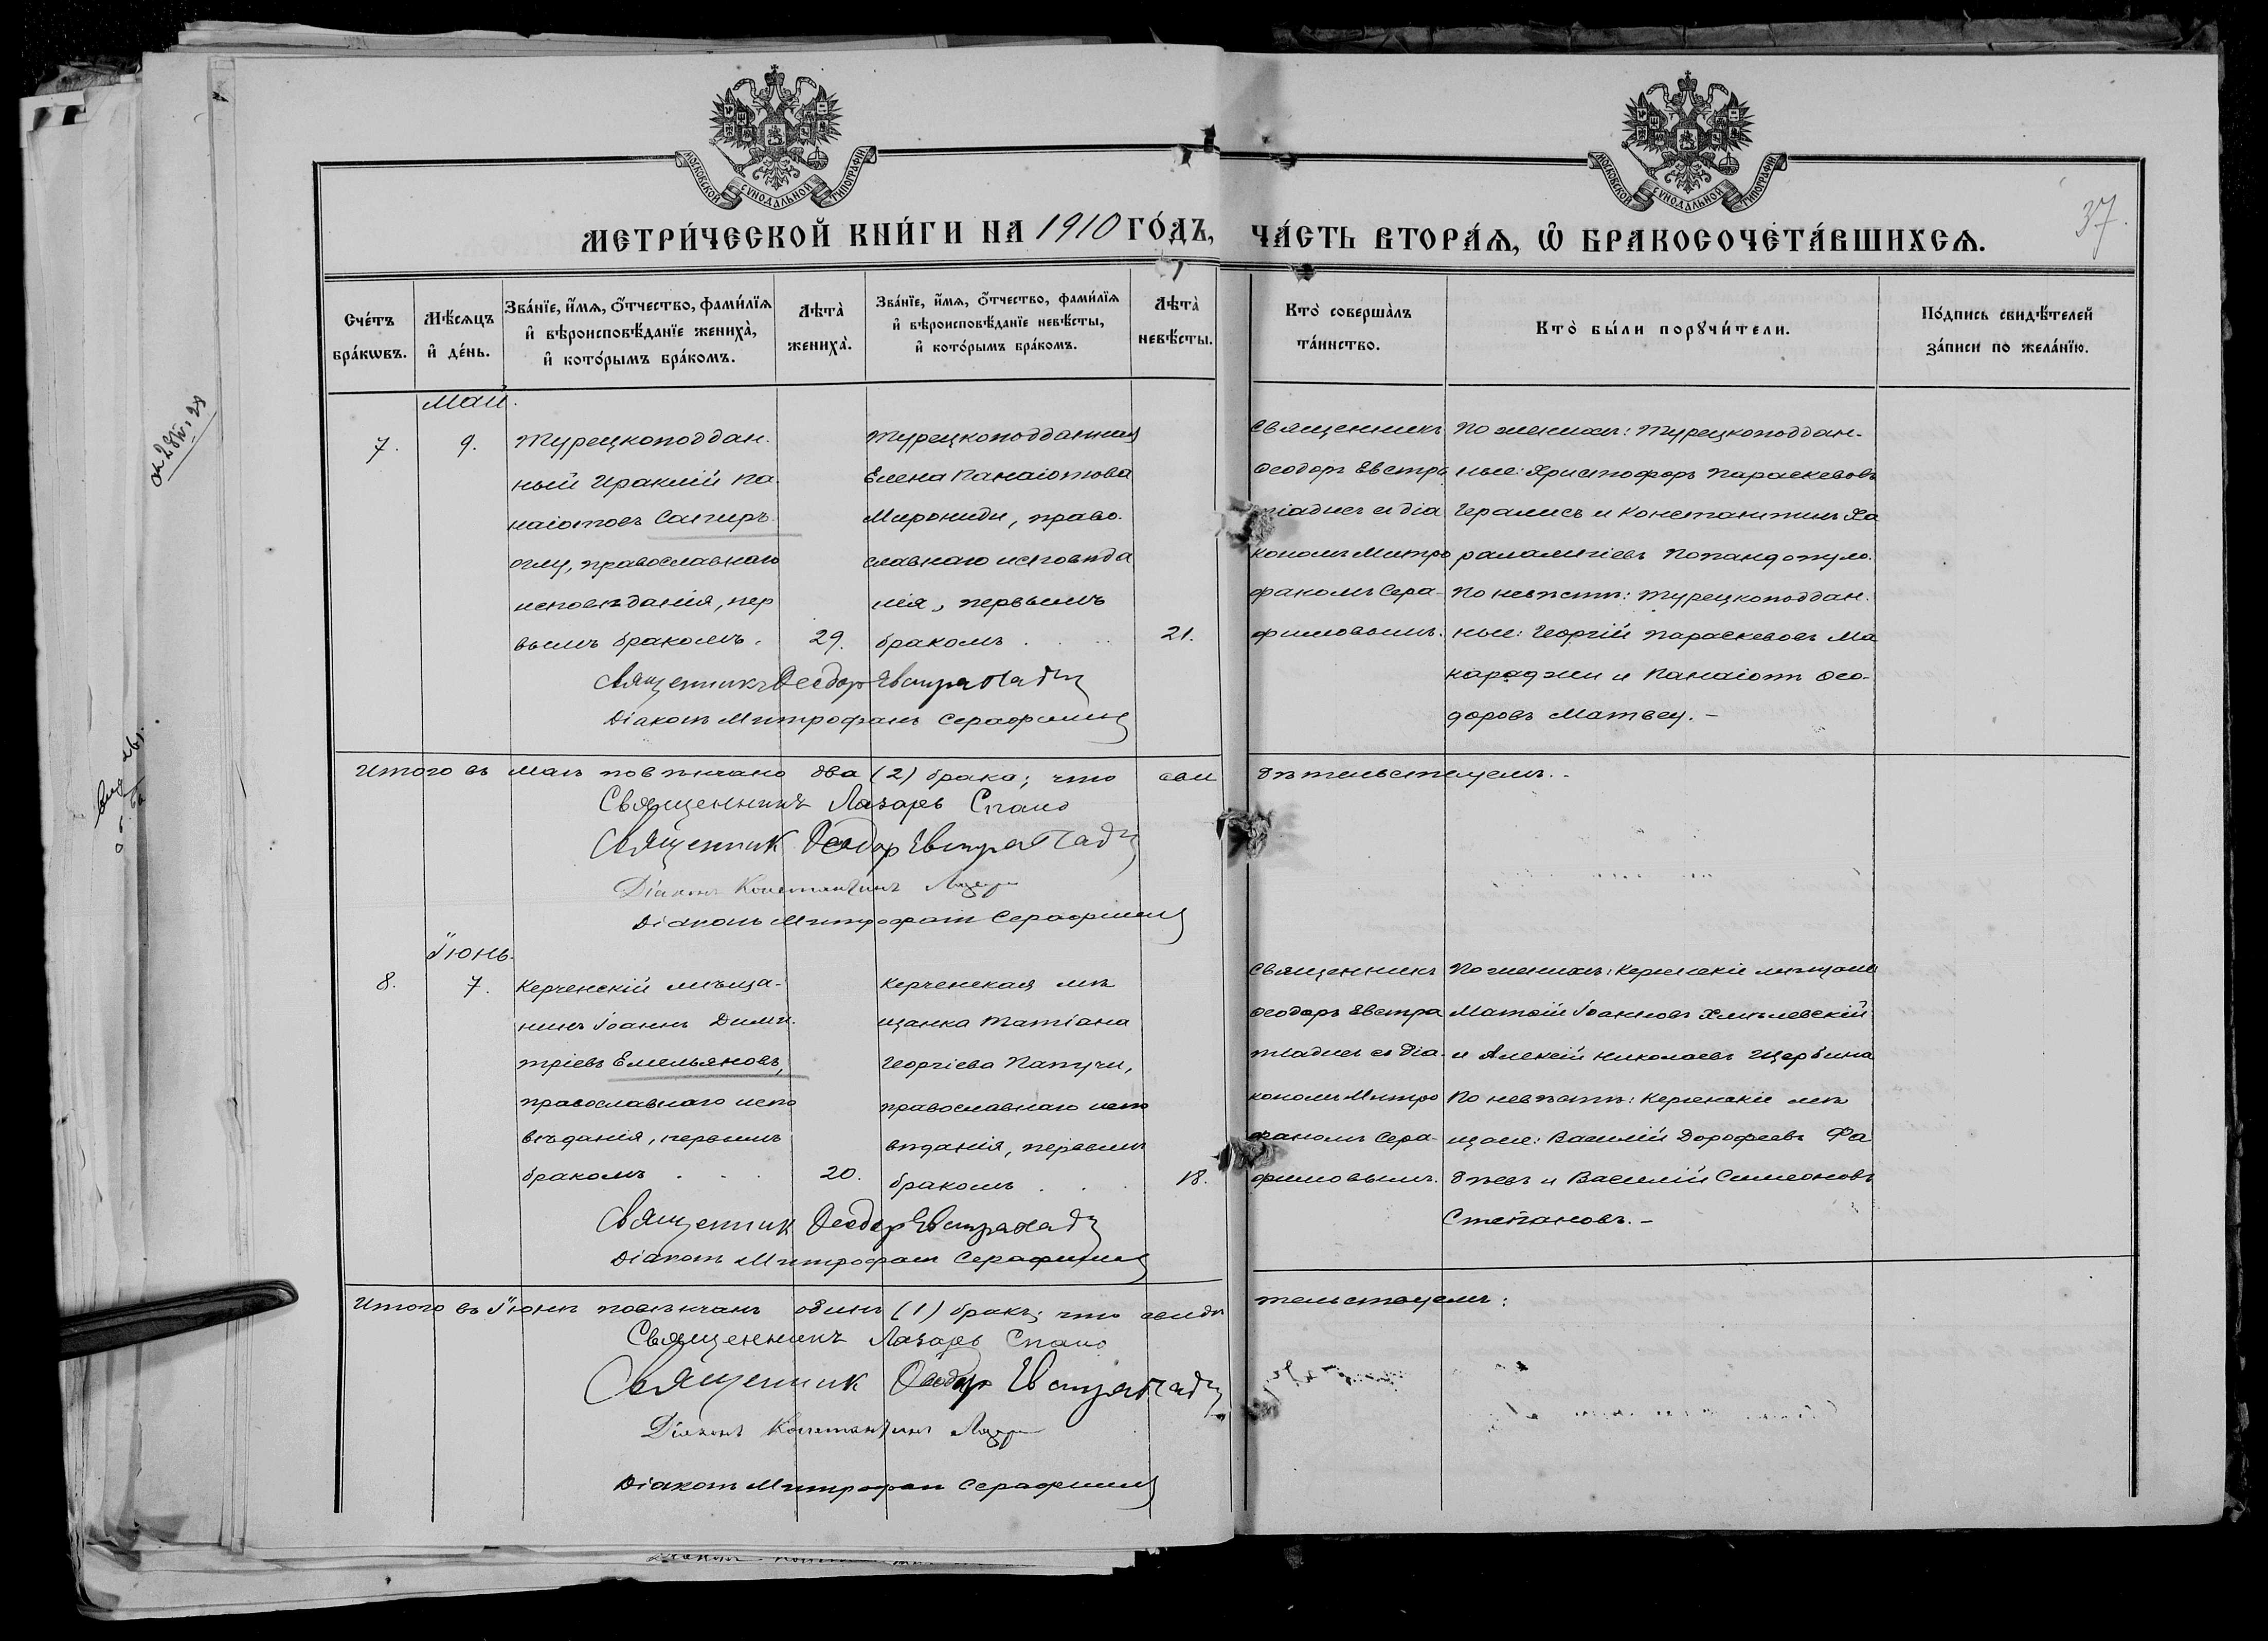 МОСКОВСКОЙ СѴНОДАЛЬНОЙ ТИПОГРАФІИ
МОСКОВСКОЙ СѴНОДАЛЬНОЙ ТИПОГРАФІИ
37.
МЕТРИ́ЧЕСКОЙ КНИ́ГИ НА 1910 ГО́ДЪ,
ЧА́СТЬ ВТОРА́Ѧ, Ѽ БРАКОСОЧЕТА́ВШИХСѦ.
Сче́тъ
бра́кѡвъ.
Мѣ́сѧцъ
и҆ де́нь.
Зва́нїе, и҆́мѧ, ѻ҆́тчество, фами́лїѧ
и҆ вѣроисповѣ́данїе жениха̀,
и҆ кото́рымъ бра́комъ.
Лѣта̀
жениха̀.
Зва́нїе, и҆́мѧ, ѻ҆́тчество, фами́лїѧ
и҆ вѣроисповѣ́данїе невѣ́сты,
и҆ кото́рымъ бра́комъ.
Лѣта̀
невѣ́сты.
Кто̀ соверша̀лъ
та́инство.
Кто̀ бы́ли порꙋчи́тели.
По́дпись свидѣ́телей
за́писи по жела́нїю.
Май.
7.
9.
Турецкоподдан-
ный Ираклій Па-
наіотовъ Сангиръ-
оглу, православнаго
исповѣданія, пер
вымъ бракомъ.
29.
Турецкоподданная
Елена Панаіотова
Мирониди, право-
славнаго исповѣда
нія, первымъ
бракомъ
21.
Священникъ
Ѳеодоръ Евстра
тіадисъ съ діа
кономъ Митро
фаномъ Сера-
фимовымъ.
По женихѣ: Турецкоподдан-
ные: Христофоръ Параскевовъ
Герамисъ и Константинъ Ха
ралампіевъ Попандопуло.
По невѣстѣ: Турецкоподдан-
ные: Георгій Параскевовъ Ма
караджи и Панаіотъ Ѳео-
доровъ Матвеи.-
Священникъ Ѳеодоръ Евстратіади
Діаконъ Митрофанъ Серафимовъ
Итого въ маѣ повѣнчано два (2) брака; что сви
дѣтельствуемъ.-
Священникъ Лазарь Спано
Священник Ѳеодор Евстратіади
Діаконъ Константинъ
Діаконъ Митрофанъ Серафимовъ
Іюнь.
8.
7.
Керченскій мѣща-
нинъ Іоаннъ Дими-
тріевъ Емельяновъ,
православнаго испо
вѣданія, первымъ
бракомъ
20.
Керченская мѣ
щанка Татіана
Георгіева Папучи,
православнаго испо
вѣданія, первымъ
бракомъ
18.
Священникъ
Ѳеодоръ Евстра
тіадисъ съ діа-
кономъ Митро
фаномъ Сера-
фимовымъ.
По женихѣ: Керченскіе мѣщане
Матѳій Іоанновъ Хмѣлевскій
и Алексій Николаевъ Щербина
По невѣстѣ: Керченскіе мѣ
щане: Василій Дорофеевъ Фа
дѣевъ и Василій Симеоновъ
Степановъ.-
Священник Ѳеодор Евстратіади
Діаконъ Митрофанъ Серафимовъ
Итого въ Іюнѣ повѣнчанъ одинъ (1) бракъ; что свидѣ
тельствуемъ:
Священникъ Лазарь Спано
Священник Ѳеодор Евстратіади
Діаконъ Константинъ
Діаконъ Митрофанъ Серафимовъ